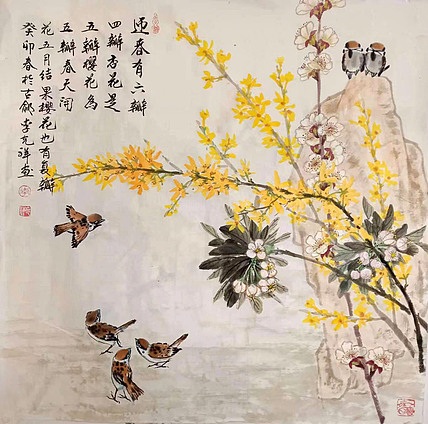 迎春有六瓣
四瓣杏花是
五瓣樱花为
五瓣春天开
花五月结果樱花也有复瓣
癸卯春於古郃李克祥画